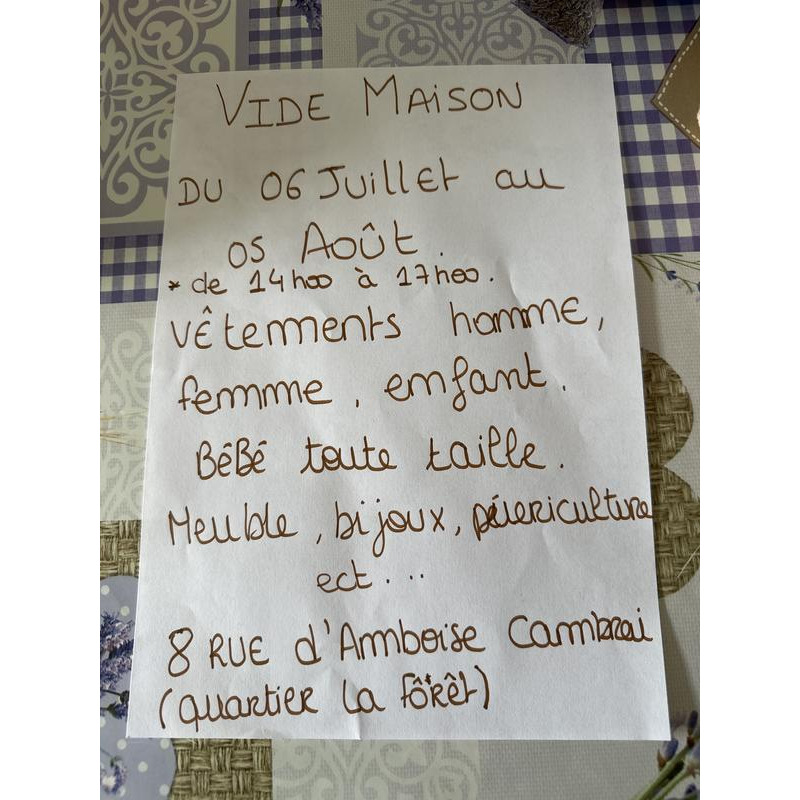 VIDE MAISON
DU 06 Juillet au
05 Août.
* de 14h00 à 17h00.
VÊtements homme,
femme, enfant.
BéBé toute taille.
Meuble, bijoux, péuericulture
ect...
8 RUE d'Amboise Cambrai
(quartier La fôrêt)